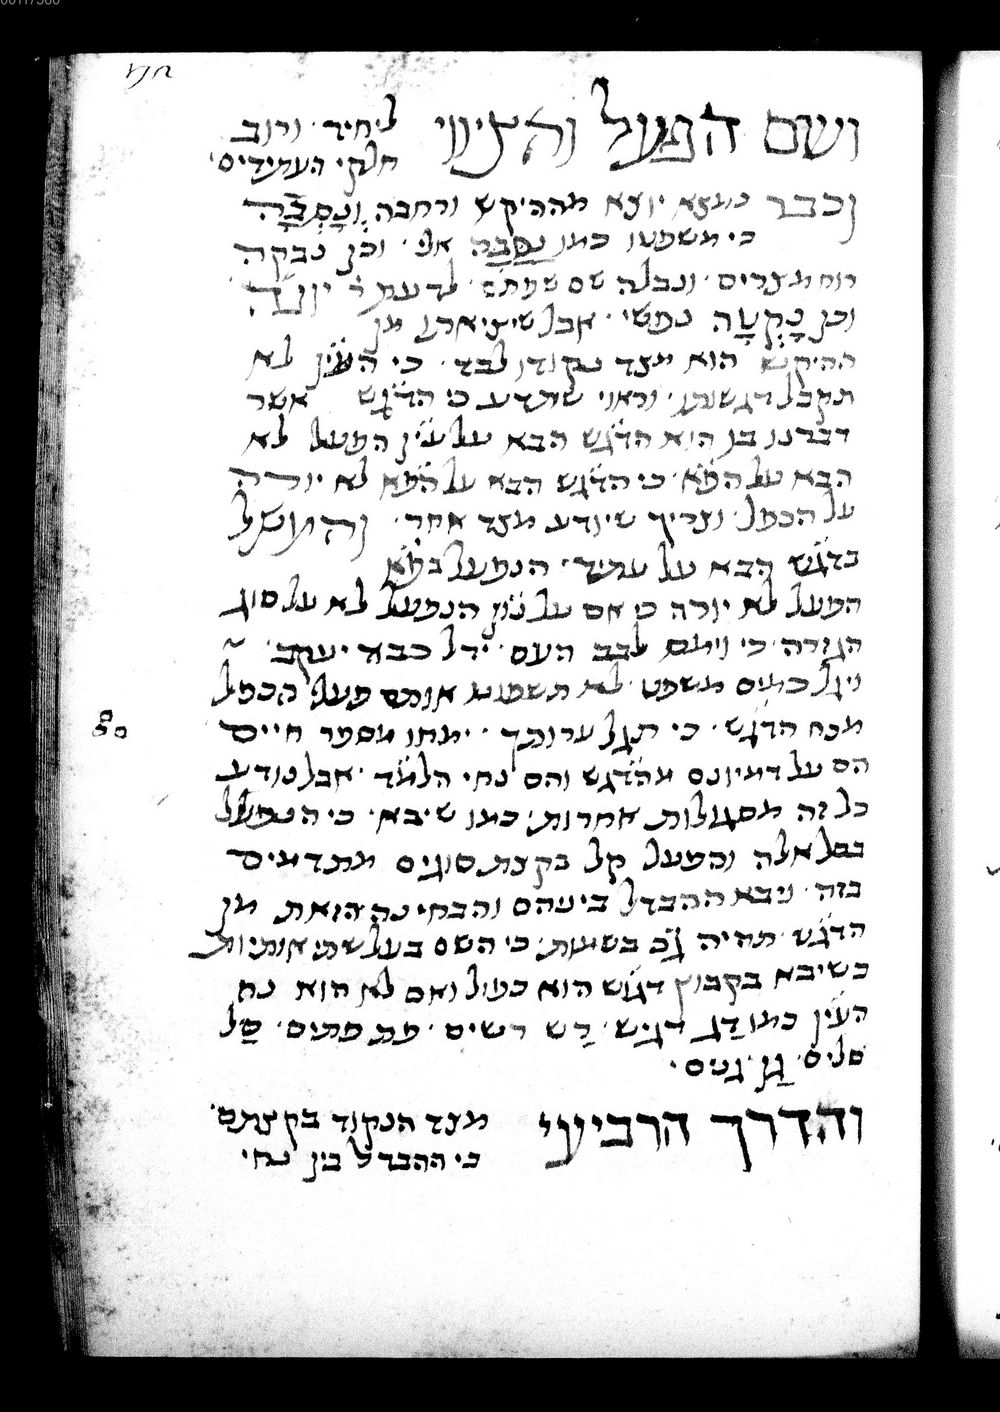 ושם הפעל והציווי ליחיד. ורוב
חלקי העתידים.
וכבר נמצא יוצא מההיקש ורחבה וְנָסְבָּה
כי משפטו כמו נָסַבָּה אני. וכן נבקה
רוח מצרים. ונבלה שם שפתם. לדעת ר' יונ"ה.
וכן נָקְטָה נפשי. אבל שיציארנו מן
ההיקש הוא מצד נקודו לבד. כי העי"ן לא
תקבל דגשנתנו. וראוי שתדע כי הדג"ש אשר
דברנו בו הוא הדג"ש הבא על עי"ן הפעל לא
הבא על הפ"א. כי הדג"ש הבא על הפ"א לא יורה
על הכפל. וצריך שיודע מצד אחר. והמשל
בדג"ש הבא על עתיד הנפעל בפ"א
הפעל לא יורה כי אם על נו"ן הנפעל לא על סוג
הגזרה. כי וימס לבב העם. ידל כבוד יעקב.
ויגל כמים משפט. לא תשפוט אותם פעלי הכפל
מכח הדג"ש. כי תגל ערותך. ימחו מספר חיים
הם על דמיונם מהדגש והם נחי הלמ"ד. אבל נודע
כל זה מסגולות אחרות. כמו שיבא. כי הנפעל
בכל אלה והפעל קל בקצת סוגים מתדמים
בזה. ויבא ההבדל ביניהם והבחינה הזאת מן
הדג"ש תהיה ג"כ בשמות. כי השם בעל שתי אותיות
כשיבא בקבוץ דגוש הוא כפול ואם לא הוא נח
העי"ן כמו דַג דגים. רַש רשים. פת פתים. סַל
סלים. גַן גנים.
והדרך הרביעי מצד הנקוד בקצתם.
כי ההבדל בין נחי